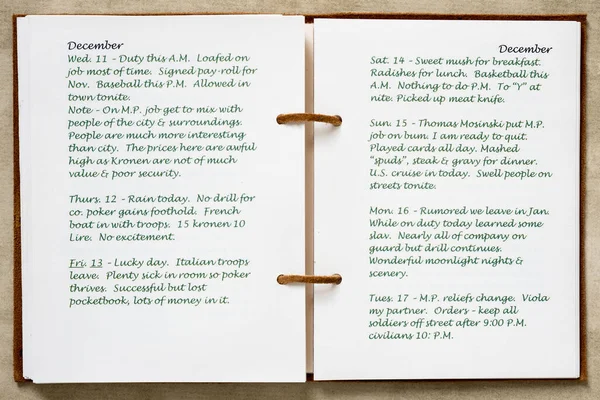 December
Wed. 11 - Duty this A.M. Loafed on
job most of time. Signed pay-roll for
Nov. Baseball this P.M. Allowed in
town tonite.
Note - On M.P. job get to mix with
people of the city & surroundings.
People are much more interesting
than city. The prices here are awful
high as Kronen are not of much
value & poor security.
Thurs. 12 - Rain today. No drill for
co. poker gains foothold. French
boat in with troops. 15 kronen 10
Lire. No excitement.
Fri. 13 - Lucky day. Italian troops
leave. Plenty sick in room so poker
thrives. Successful but lost
pocketbook, lots of money in it.
December
Sat. 14 - Sweet mush for breakfast.
Radishes for lunch. Basketball this
A.M. Nothing to do P.M. To "Y" at
nite. Picked up meat knife.
Sun. 15 - Thomas Mosinski put M.P.
job on bum. I am ready to quit.
Played cards all day. Mashed
"spuds", steak & gravy for dinner.
U.S. cruise in today. Swell people on
streets tonite.
Mon. 16 - Rumored we leave in Jan.
While on duty today learned some
slav. Nearly all of company on
guard but drill continues.
Wonderful moonlight nights &
scenery.
Tues. 17 - M.P. reliefs change. Viola
my partner. Orders - keep all
soldiers off street after 9:00 P.M.
civilians 10: P.M.